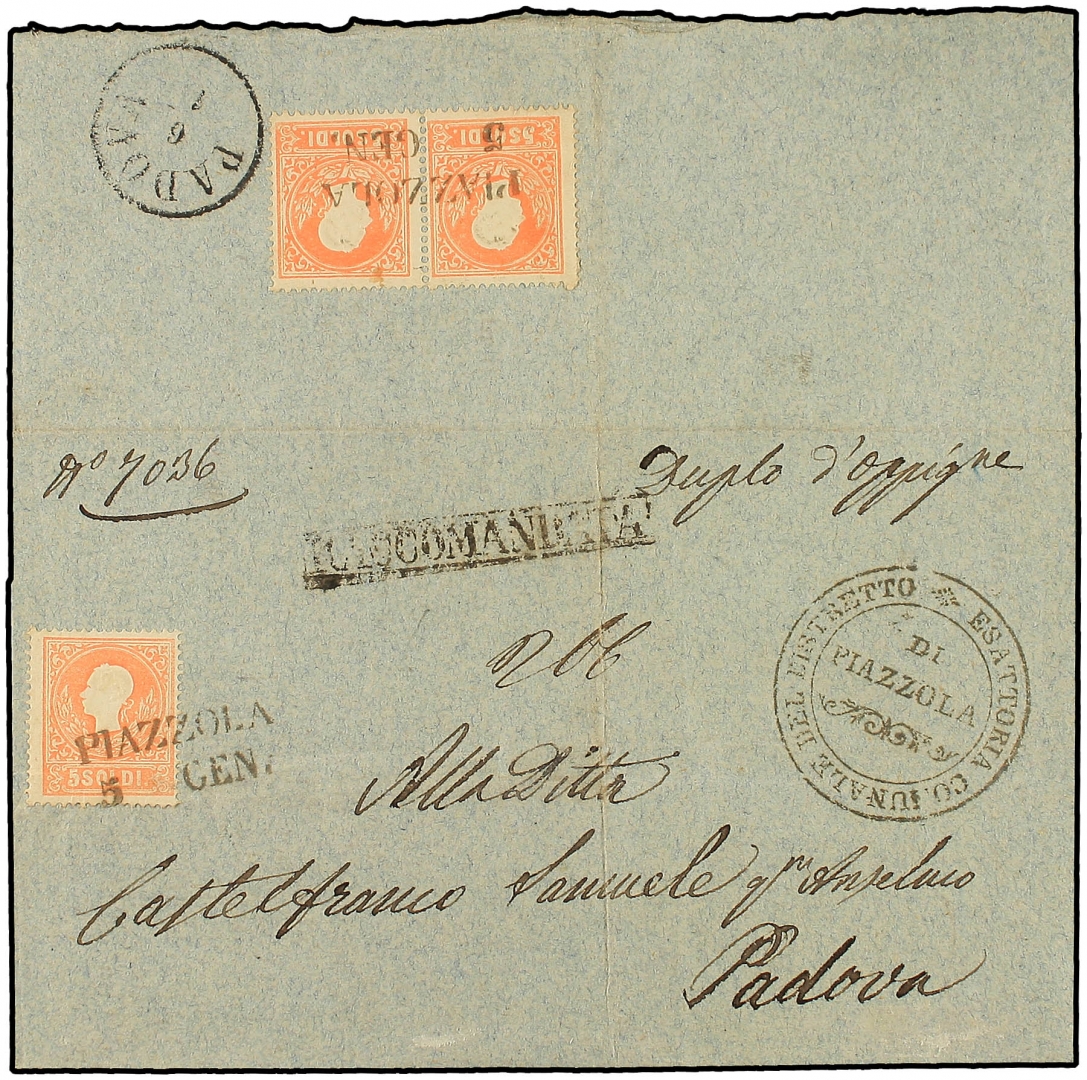 PADOVA
6
1
5 SOLDI
5 SOLDI
PIAZZOLA
5 GEN.
Nº 7036
Duplo d'
RACCOMANDATA
ESATTORIA COMUNALE DEL DISTRETTO
DI
PIAZZOLA
5 SOLDI
PIAZZOLA
5 GEN.
Alla Ditta
Castelfranco Samuele qm Anselmo
Padova